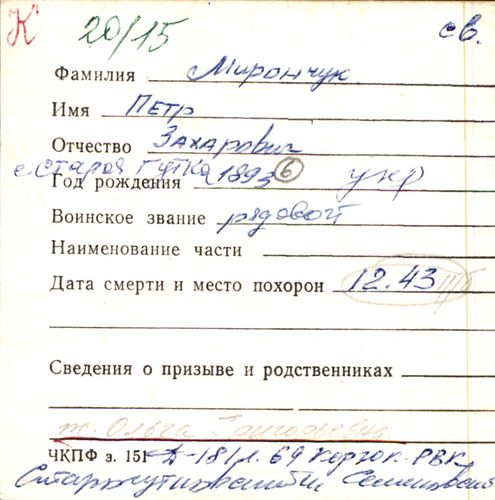 К 20/15 св.
Фамилия Мирончук
Имя Петр
Отчество Захарович
с. Старая Гутка
Год рождения 1893 6 укр
Воинское звание рядовой
Наименование части
Дата смерти и место похорон 12.43
Сведения о призыве и родственниках
ж. Ольга Григорьевна
ЧКПФ з. 151 181 л. 69 РВК